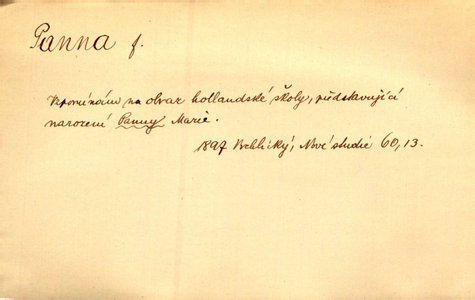 Panna f.
Vzpomínám na obraz hollandské školy, představující
narození Panny Marie.
1897 Vrchlický, Nové studie 60, 13.